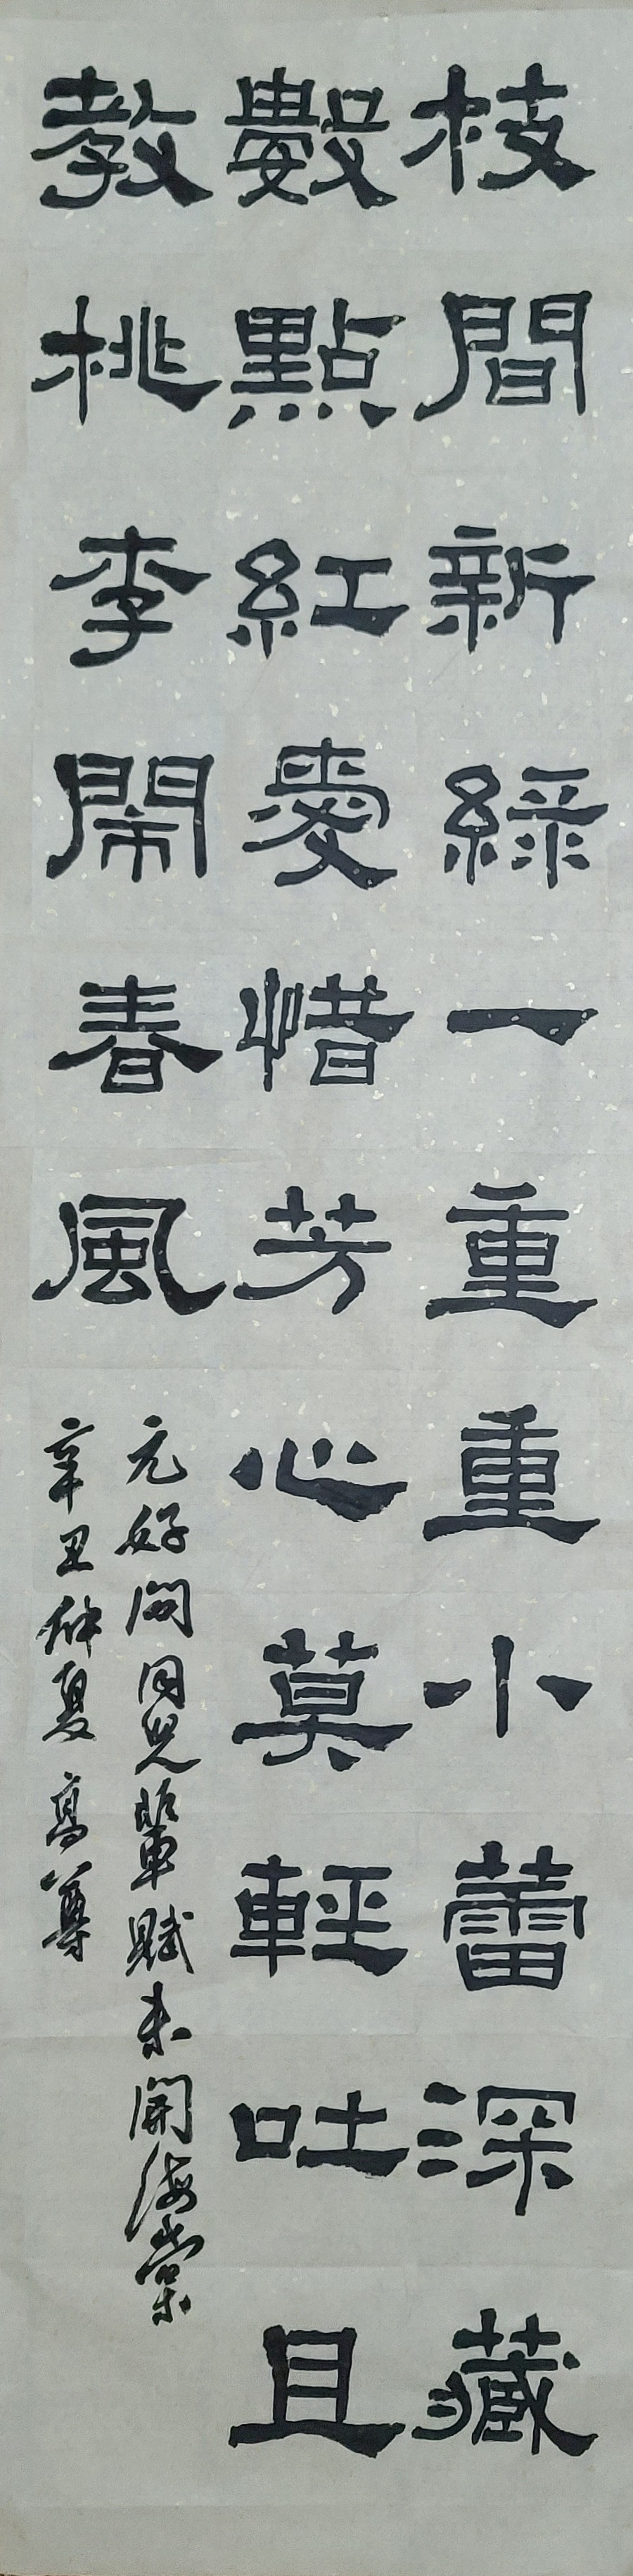 枝間新綠一重重小蕾深藏
數點紅愛惜芳心莫輕吐且
教桃李鬧春風
元好問同児輩賦未開海棠
辛丑仲夏高尊